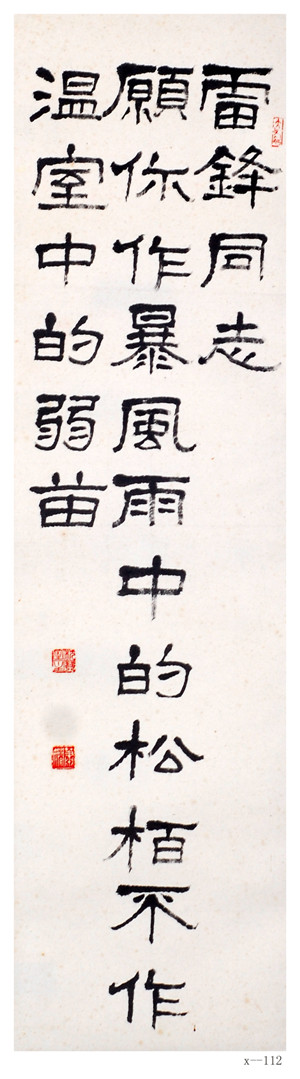 雷鋒同志
願你作暴風雨中的松栢不作
温室中的弱苗
x--112